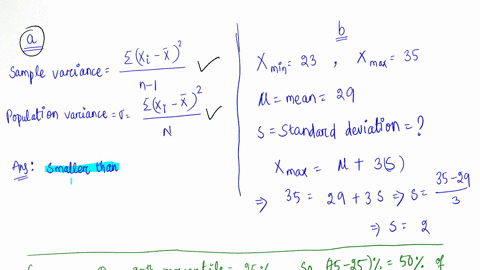 a
Sample variance = Σ(xi – x̄)² / n-1 ✓
Population variance = σ = Σ(xi – x̄)² / N ✓
Ans: Smaller than
b
Xmin = 23 , Xmax = 35
μ = mean = 29
S = Standard deviation = ?
Xmax = μ + 3(S)
⇒ 35 = 29 + 3S ⇒ S = 35-29 / 3
⇒ S = 2
percentile = 25% So (75-25)% = 50% of